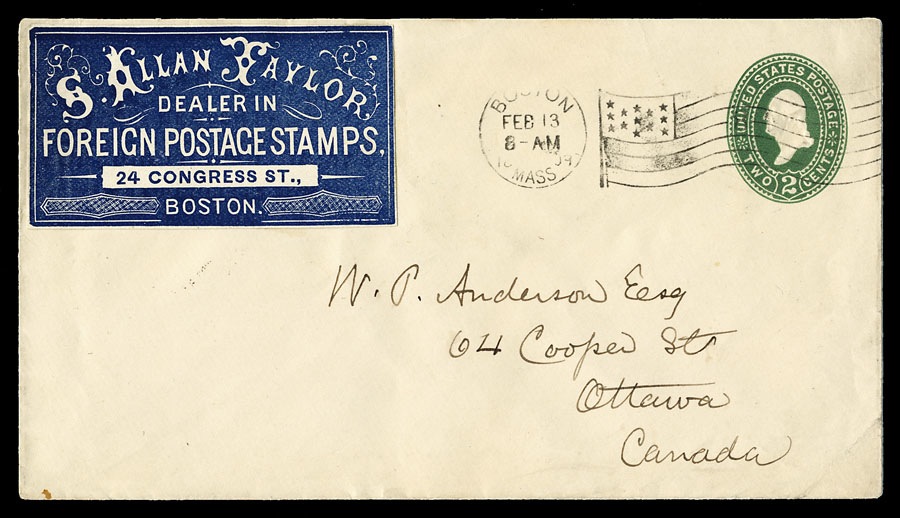 S. ALLAN TAYLOR
DEALER IN
FOREIGN POSTAGE STAMPS,
24 CONGRESS ST.,
BOSTON.
BOSTON
FEB 13
8-AM
MASS
UNITED STATES POSTAGE
TWO 2 CENTS
W. P. Anderson Esq
64 Cooper St
Ottawa
Canada